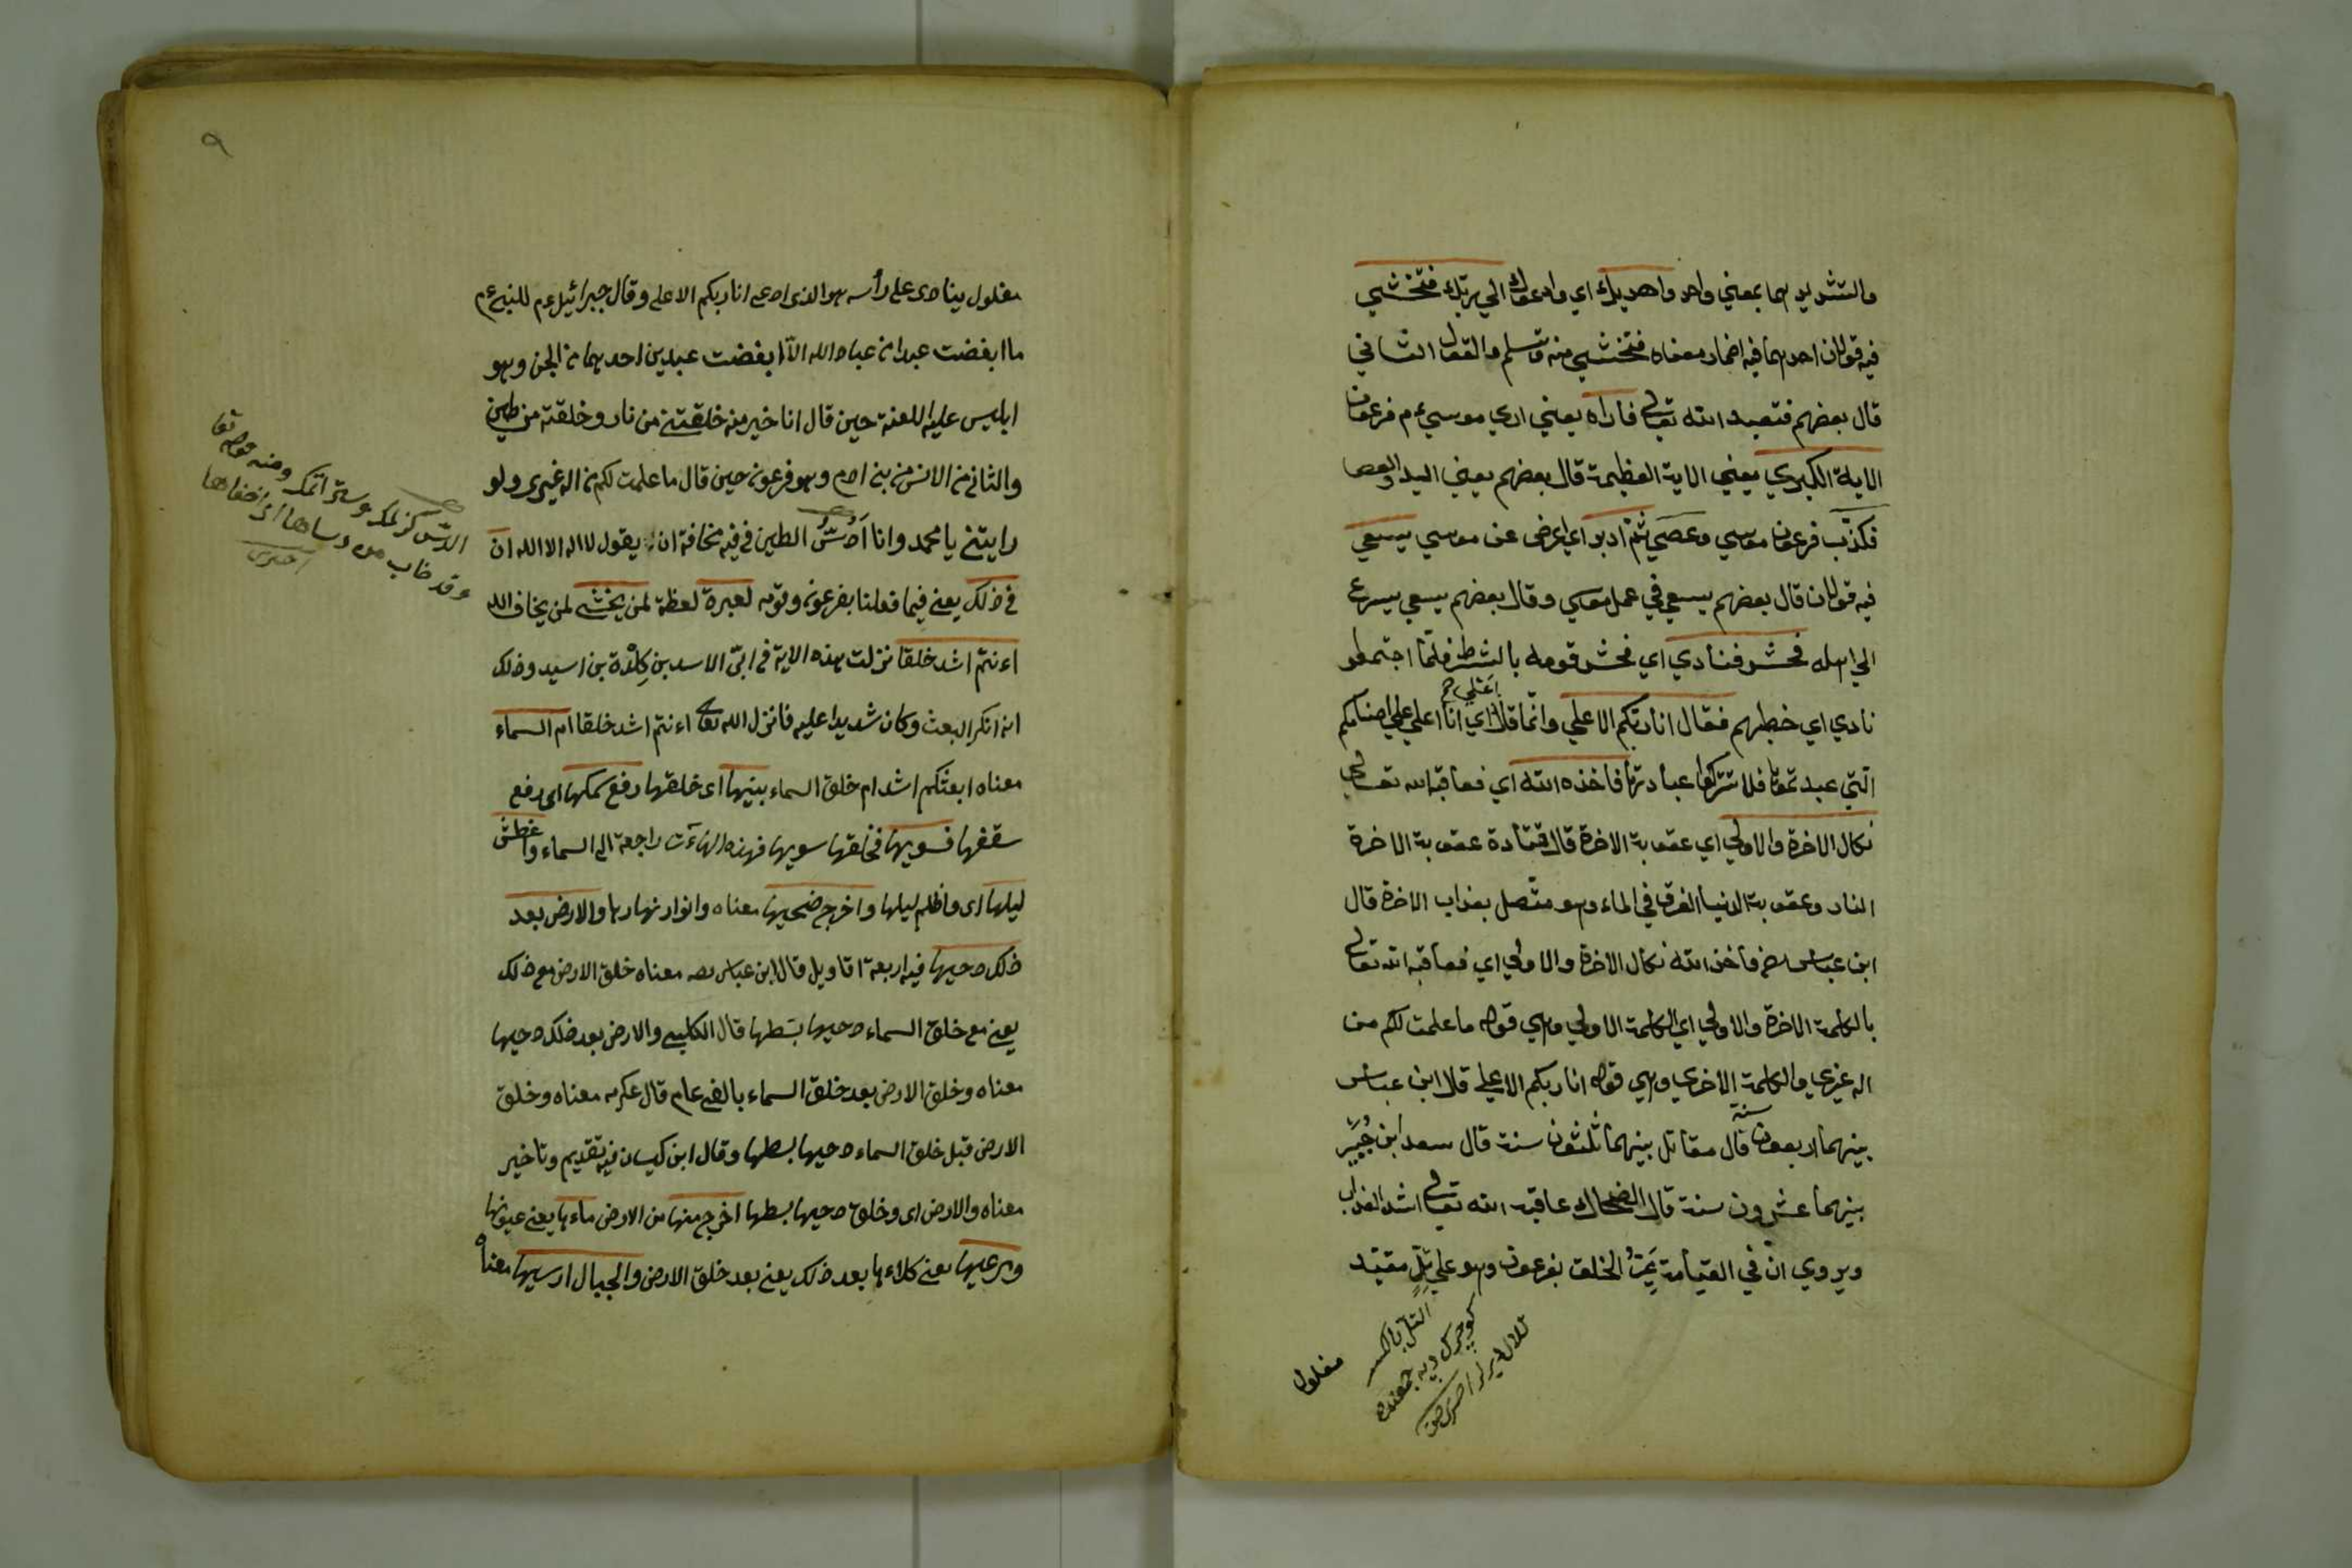 والتشديد هما بمعني واحد واهديك اي وادعوك الي ربك فتخشي
فيه قولان احدهما فيه اضمار معناه فتخشي منه وتسلم والقول الثاني
قال بعضهم فتعبد الله تعالى فاراه يعني اري موسي ع م فرعون
الاية الكبري يعني الاية العظيمة قال بعضهم يعني اليد والعصا
فكذب فرعون موسي وعصي ثم ادبر اي اعرض عن موسي يسعي
فيه قولان قال بعضهم يسعي في عمل موسي وقال بعضهم يسعي يسرع
الي اهله فحشر فنادي اي فحشر قومه بالشرط فلما اجتمعوا
نادي اي خطبهم فقال انا ربكم الاعلي وانما قال اي انا اعلي علي اصنامكم
التي عبدتموها فلا تتركوا عبادتها فاخذه الله اي فعاقبه الله تعالى
نكال الاخرة والاولي اي عقوبة الاخرة قال قتادة عقوبة الاخرة
النار وعقوبة الدنيا الغرق في الماء وهو متصل بعذاب الاخرة قال
ابن عباس رضه فأخذ الله نكال الاخرة والاولي اي فعاقبه الله تعالى
بالكلمة الاخرة والاولي اي الكلمة الاولي وهي قوله ما علمت لكم من
اله غيري والكلمة الاخري وهي قوله انا ربكم الاعلي قال ابن عباس
بينهما اربعون سنة قال مقاتل بينهما ثلثون سنة قال سعد ابن جُبَيْر
بينهما عشرون سنة قال الضحاك عاقبه الله تعالى اشد العذاب
ويروي انّ في القيامة يَمُرُّ الخلق بفرعون وهو علي تلٍّ مقيد
مغلول
مغلول ينادى على رأسه هو الذى ادعى انا ربكم الاعلى وقال جبرائيل ع م للنبى ع م
ما ابغضت عبدا من عباد الله الّا ابغضت عبدين احدهما من الجن وهو
ابليس عليه اللعنة حين قال انا خير منه خلقتنى من نار وخلقته من طين
والثانى من الانس من بنى ادم وهو فرعون حين قال ما علمت لكم من اله غيرى ولو
رايتنى يا محمد وانا اَدُسُّ الطين فى فيه مخافة ان يقول لا اله الا الله ان
فى ذلك يعنى فيما فعلنا بفرعون وقومه لعبرة لعظة لمن يخشى لمن يخاف الله
ءانتم اشد خلقا نزلت هذه الاية فى ابىّ الاسد بن كِلْدَة بن اسيد وذلك
انه انكر البعث وكان شديدا عليه فانزل الله تعالى ءانتم اشد خلقا ام السماء
معناه ابعثكم اشد ام خلق السماء بنيها اى خلقها رفع سمكها اى رفع
سقفها فسويها فخلقها سويها فهذه الهاءَت راجعة الى السماء واغطش
ليلها اى واظلم ليلها واخرج ضحيها معناه وانوار نهارها والارض بعد
ذلك دحيها فيه اربعة اقاويل قال ابن عباس رضه معناه خلق الارض مع ذلك
يعنى مع خلق السماء دحيها بسَطها قال الكلبى والارض بعد ذلك دحيها
معناه وخلق الارض بعد خلق السماء بالفى عام قال عكرمه معناه وخلق
الارض قبل خلق السماء دحيها بسطها وقال ابن كيسان فيه تقديم وتاخير
معناه والارض اى وخلق دحيها بسطها اخرج منها من الارض ماءها يعنى عيونها
ومرعيها يعنى كلاءها بعد ذلك يعنى بعد خلق الارض والجبال ارسيها معناه
٩
الدسّ كزلمك وستر اتمك ومنه قوله تعا
وقد خاب من دساها اى اخفاها
اخترى